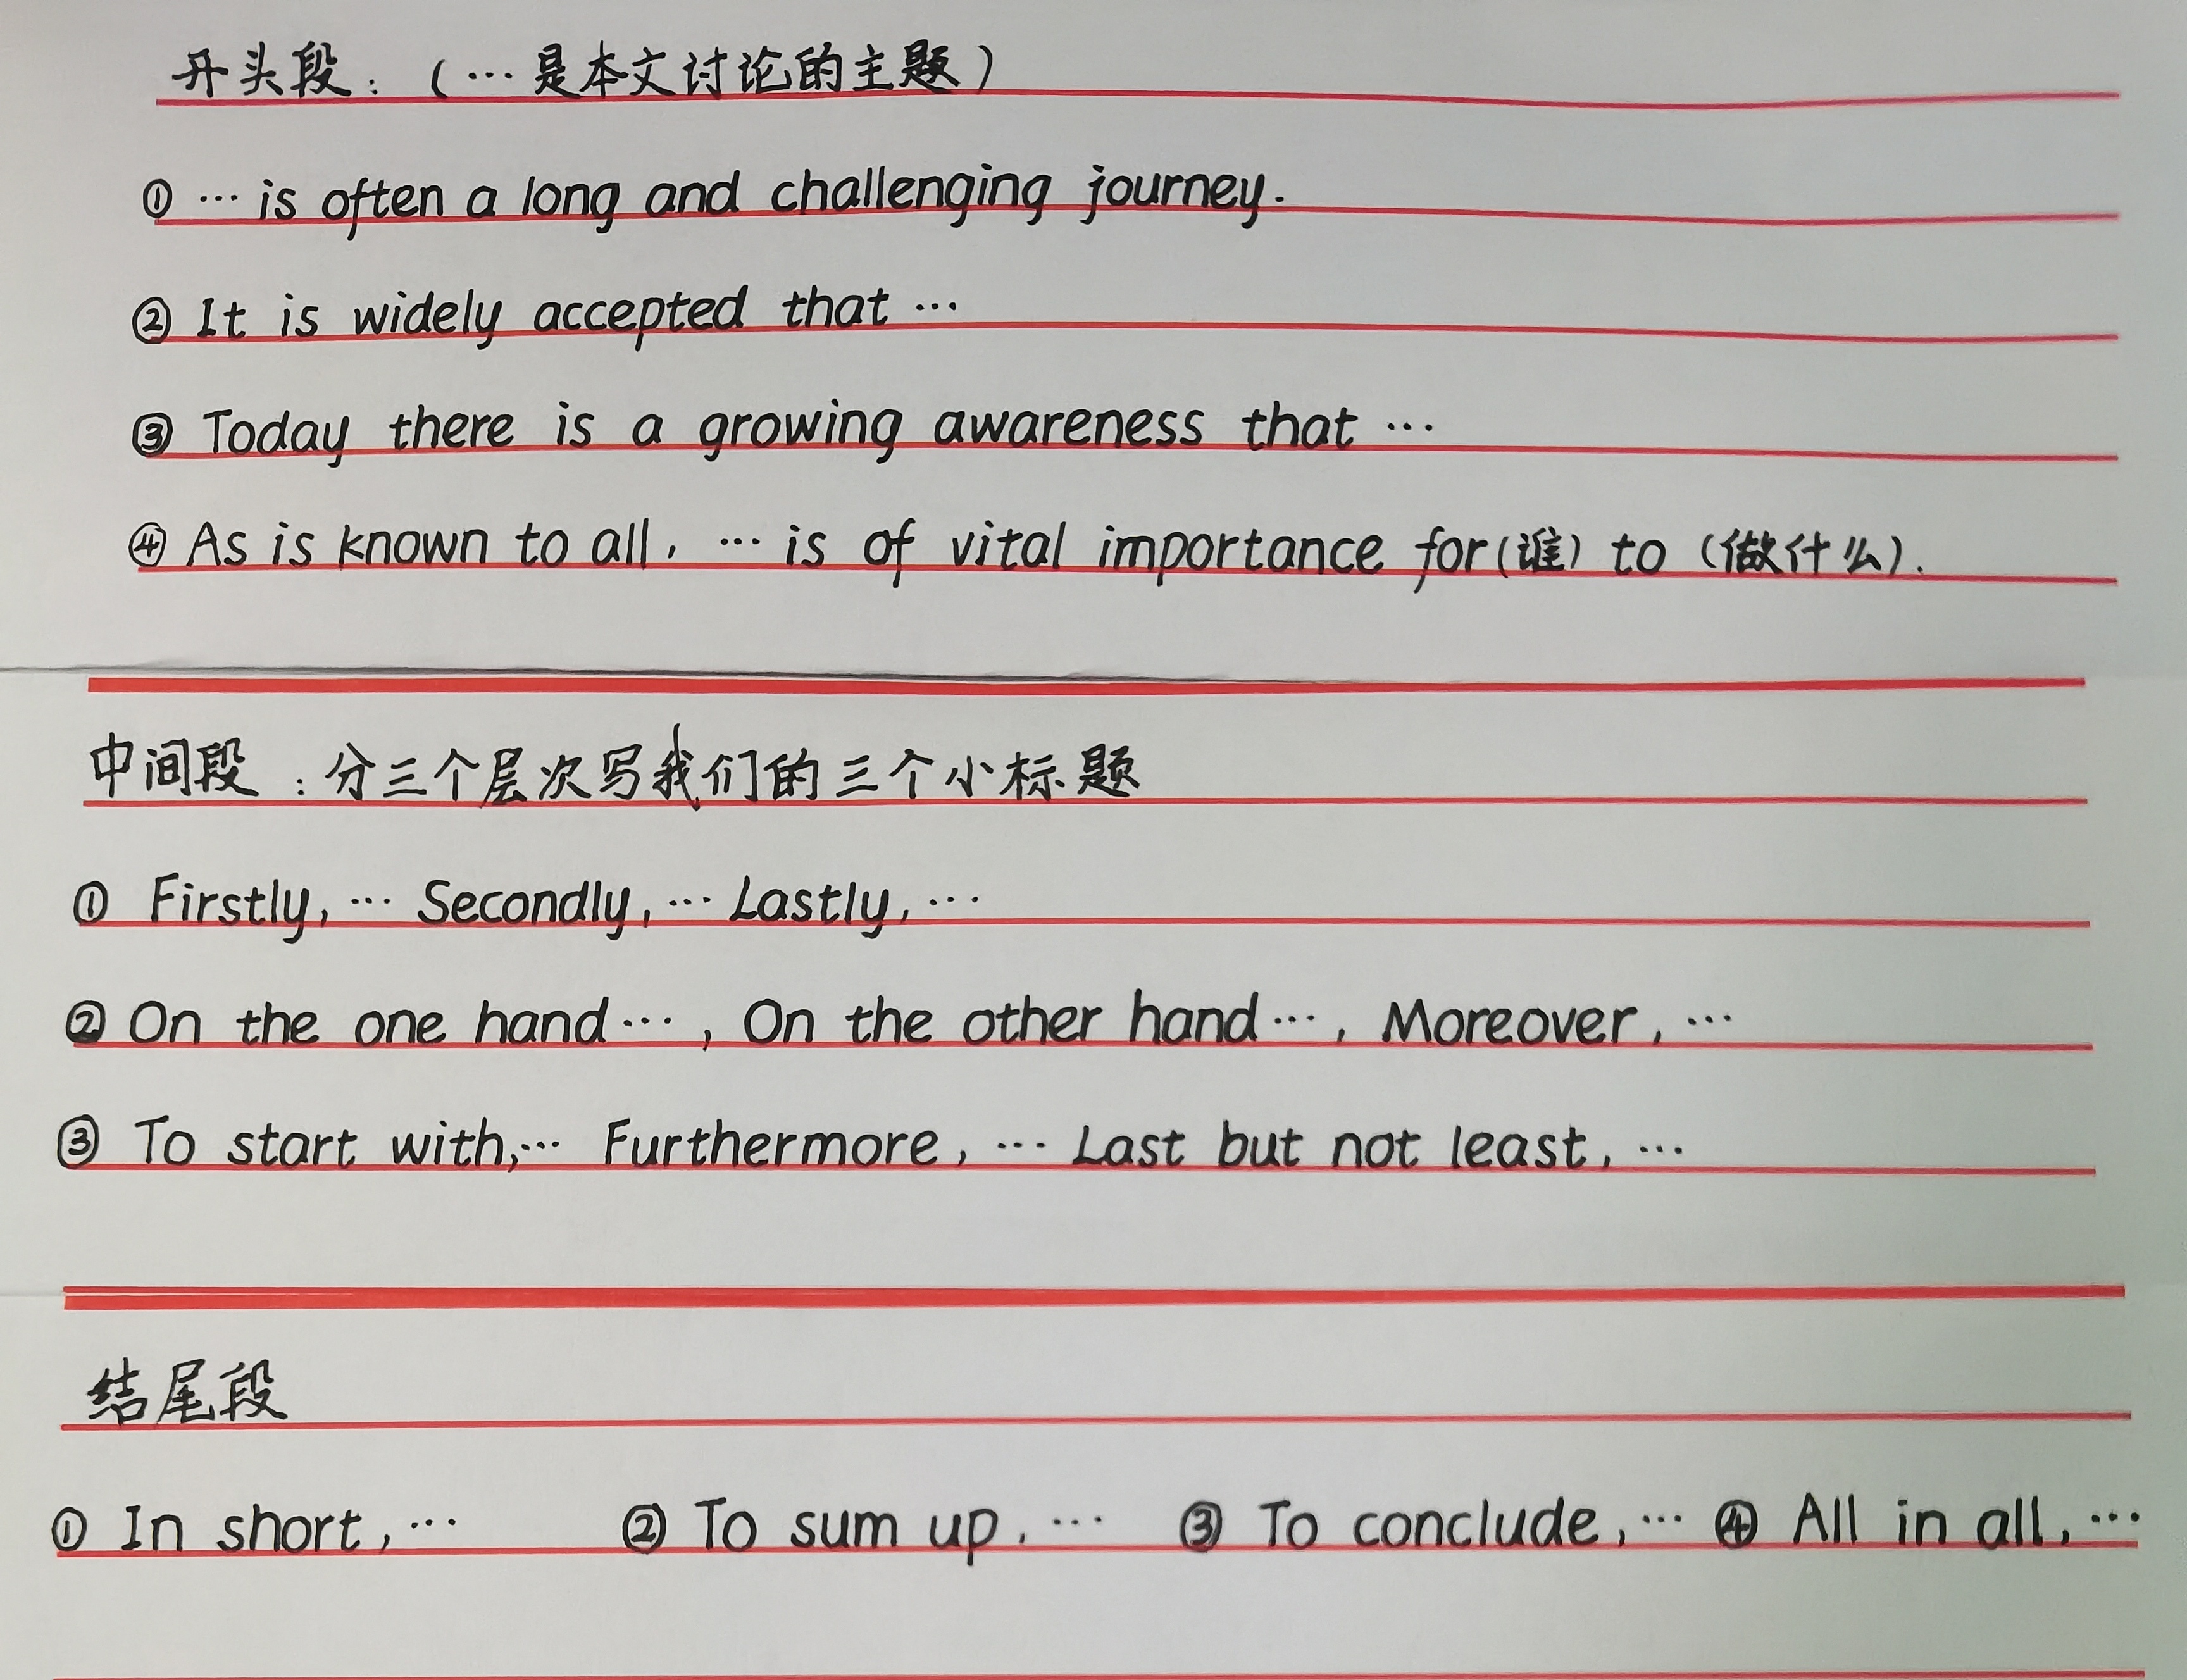 开头段：（… 是本文讨论的主题）
① … is often a long and challenging journey.
② It is widely accepted that …
③ Today there is a growing awareness that …
④ As is known to all, … is of vital importance for（谁）to（做什么）.
中间段：分三个层次写我们的三个小标题
① Firstly, … Secondly, … Lastly, …
② On the one hand … , On the other hand … , Moreover, …
③ To start with,… Furthermore, … Last but not least, …
结尾段
① In short, … ② To sum up, … ③ To conclude, … ④ All in all, …